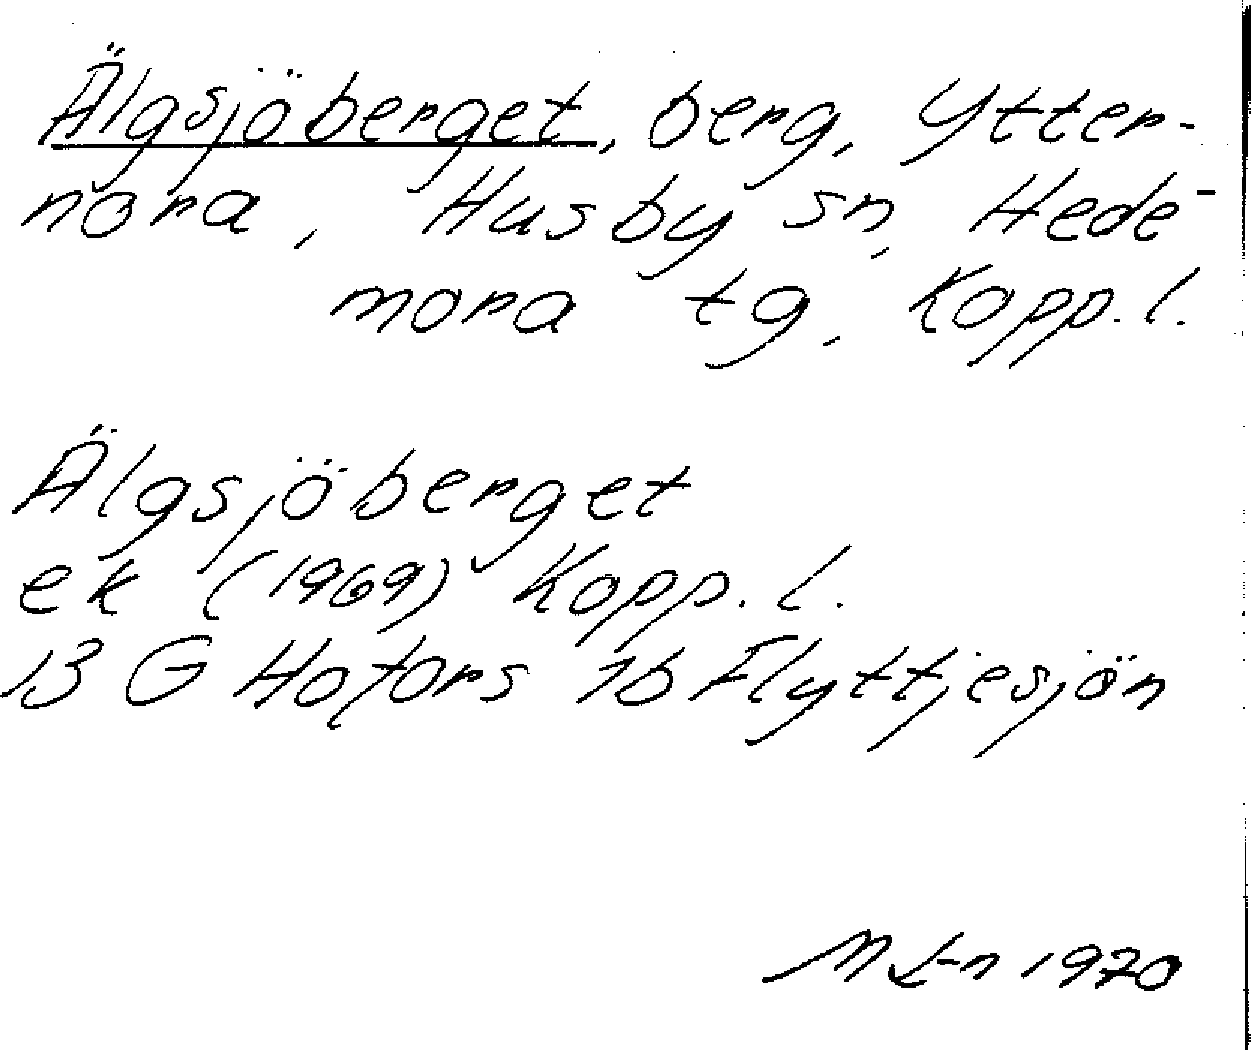 Älgsjöberget, berg, Ytter-
nora, Husby sn, Hede-
mora tg, Kopp. l.
Älgsjöberget
ek (1969) Kopp. l.
13 G Hofors 1b Flyttjesjön
M L-n 1970